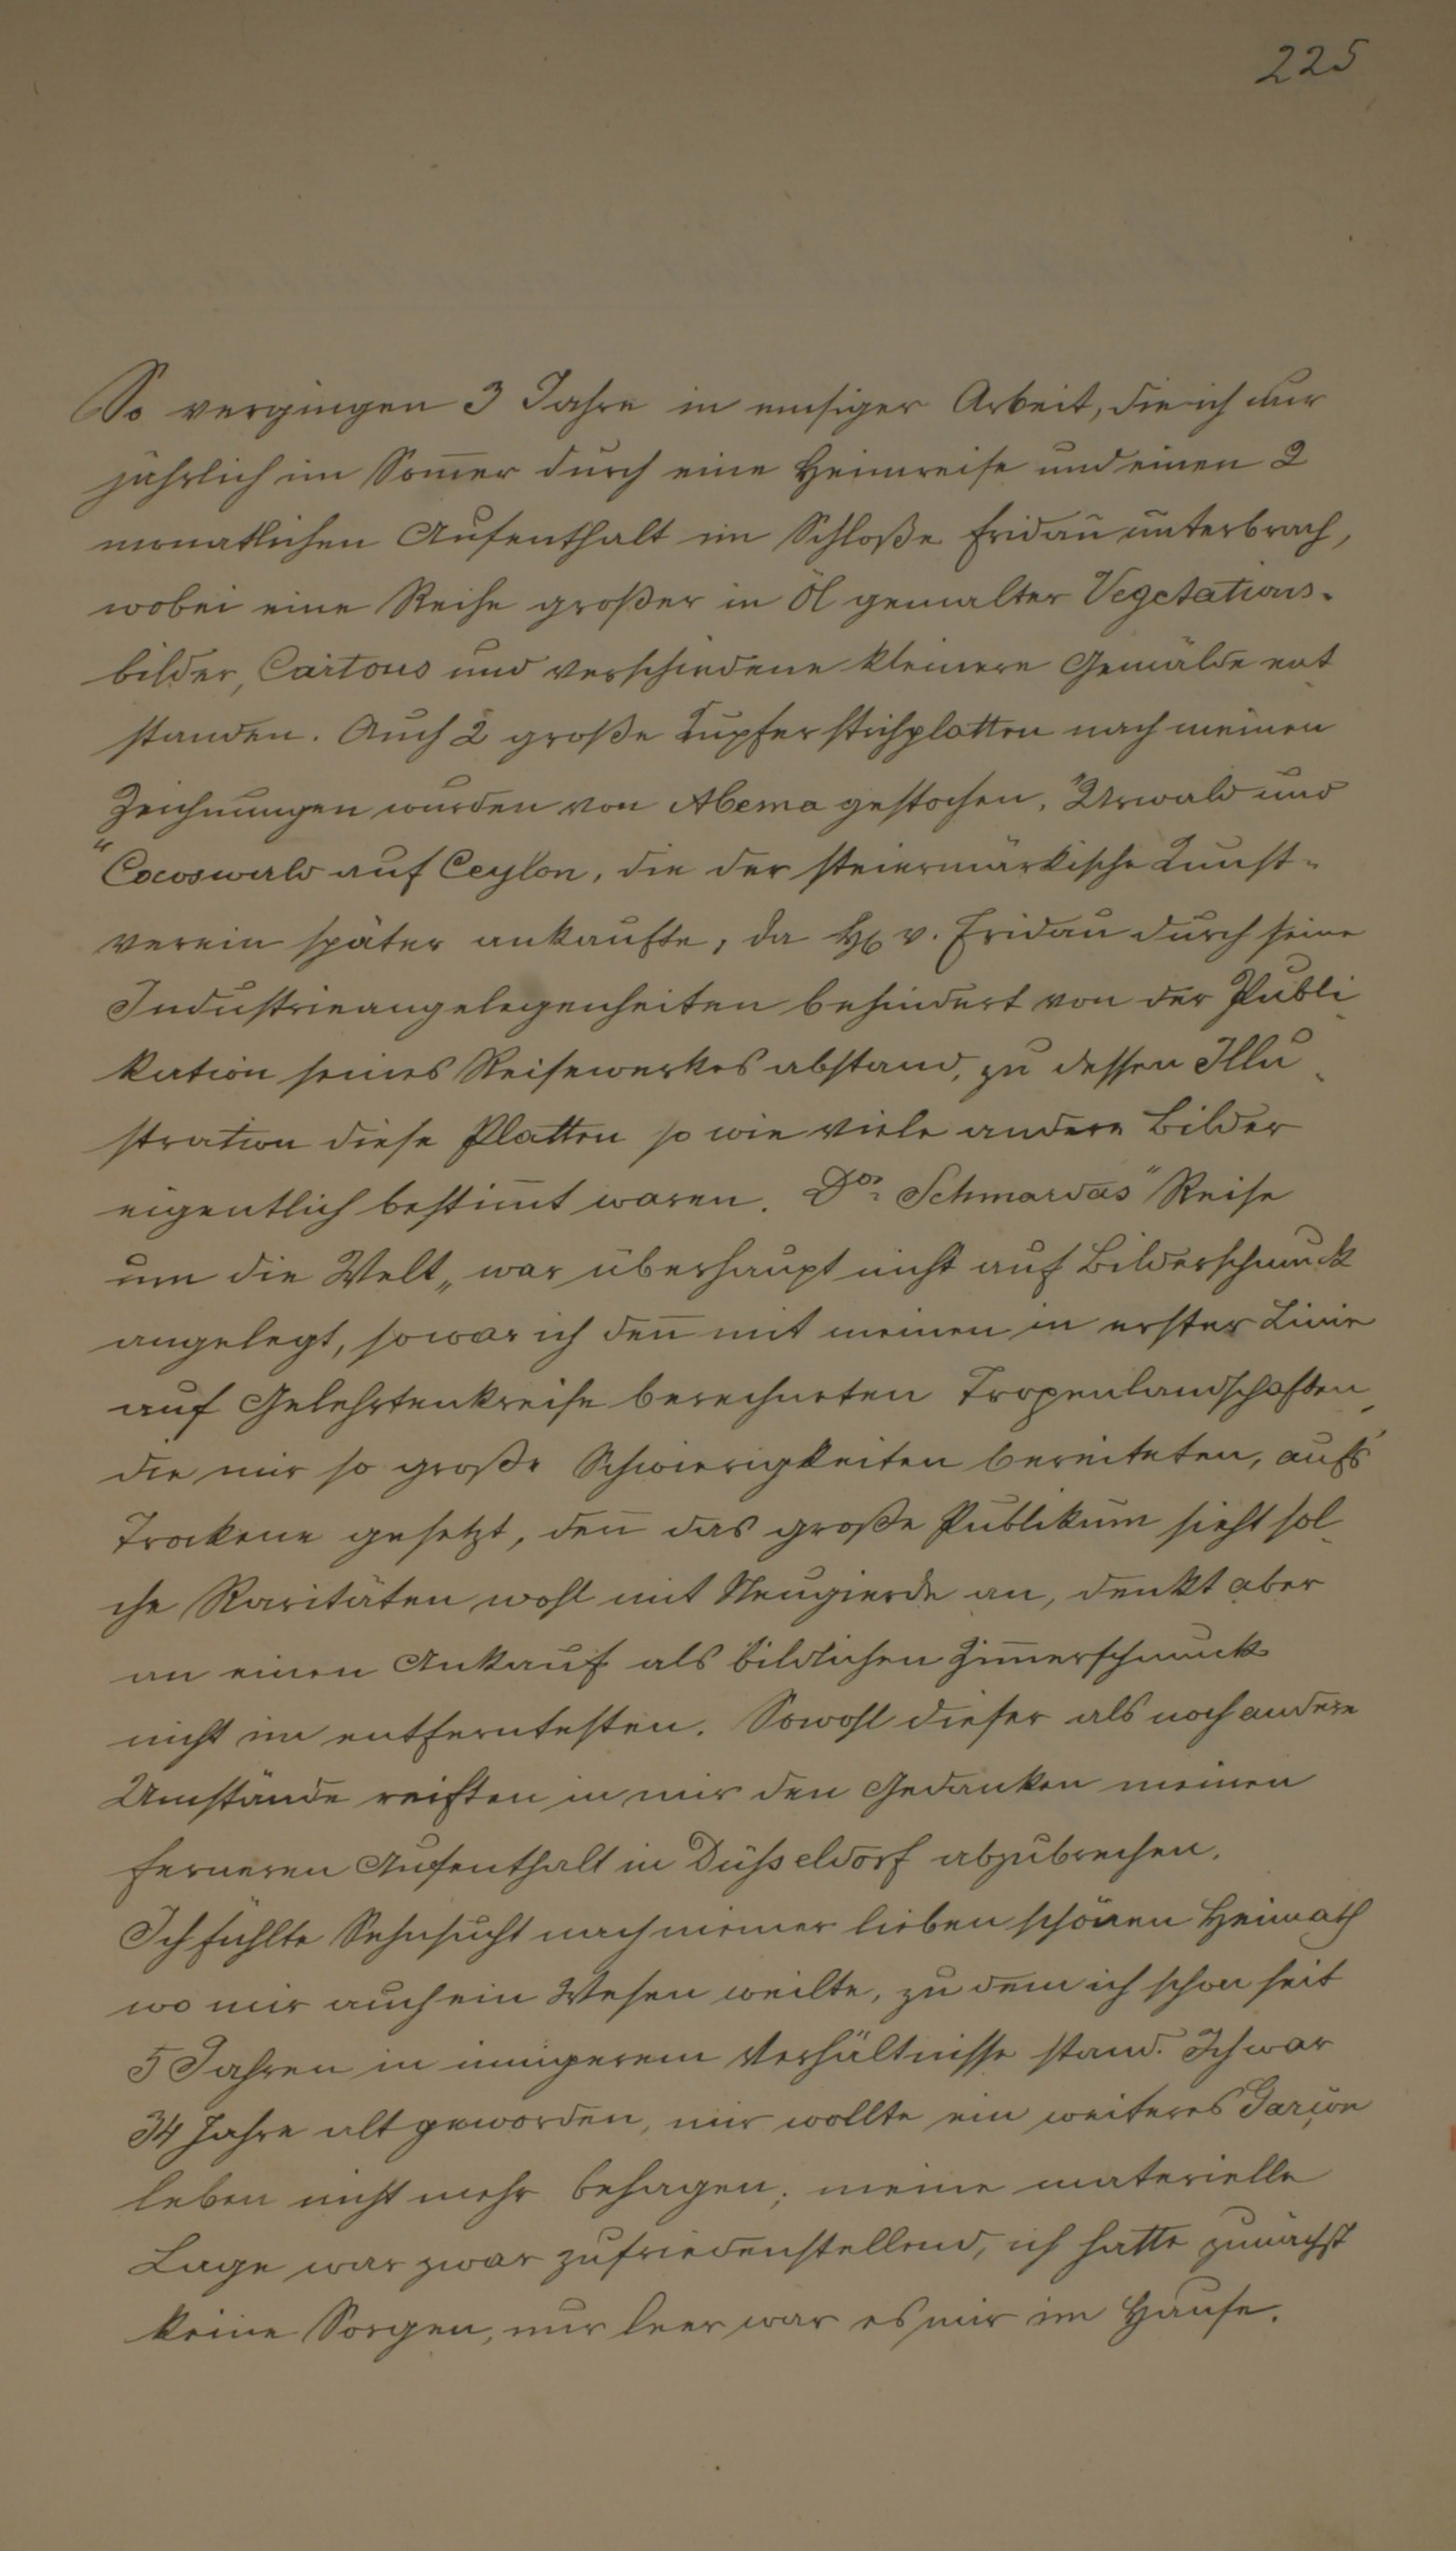 225
So vergingen 3 Jahre in emsiger Arbeit, die ich nur
jährlich im Som̄er durch eine Heimreise und einen 2
monatlichen Aufenthalt im Schloße Fridau unterbrach,
wobei eine Reihe großer in Öl gemalter Vegetations-
bilder, Cartons und verschiedene kleinere Gemälde ent
standen. Auch 2 große Kupferstichplatten nach meinen
Zeichnungen wurden von Abema gestochen, "Urwald und
"Cocoswald auf Ceylon, die der steiermärkische Kunst-
verein später ankaufte, da H v. Fridau durch seine
Industrieangelegenheiten behindert von der Publi-
kation seines Reisewerkes abstand, zu dessen Illu-
stration diese Platten so wie viele andere Bilder
eigentlich bestim̄t waren. Dor Schmardas "Reise
um die Welt„ war überhaupt nicht auf Bilderschmuck
angelegt, so war ich den̄ mit meinen in erster Linie
auf Gelehrtenkreise berechneten Tropenlandschaften,
die mir so große Schwierigkeiten bereiteten, aufs
Trockene gesetzt, den̄ das große Publikum sieht sol-
che Raritäten wohl mit Neugierde an, denkt aber
an einen Ankauf als bildlichen Zim̄erschmuck
nicht im entferntesten. Sowohl dieser als noch andere
Umstände reiften in mir den Gedanken meinen
ferneren Aufenthalt in Düsseldorf abzubrechen.
Ich fühlte Sehnsucht nach meiner lieben schönen Heimath
wo mir auch ein Wesen weilte, zu dem ich schon seit
5 Jahren in innigerem Verhältnisse stand. Ich war
34 Jahre alt geworden, mir wollte ein weiteres Garçon
leben nicht mehr behagen; meine materielle
Lage war zwar zufriedenstellend, ich hatte zunächst
keine Sorgen, nur leer war es mir im Hause.